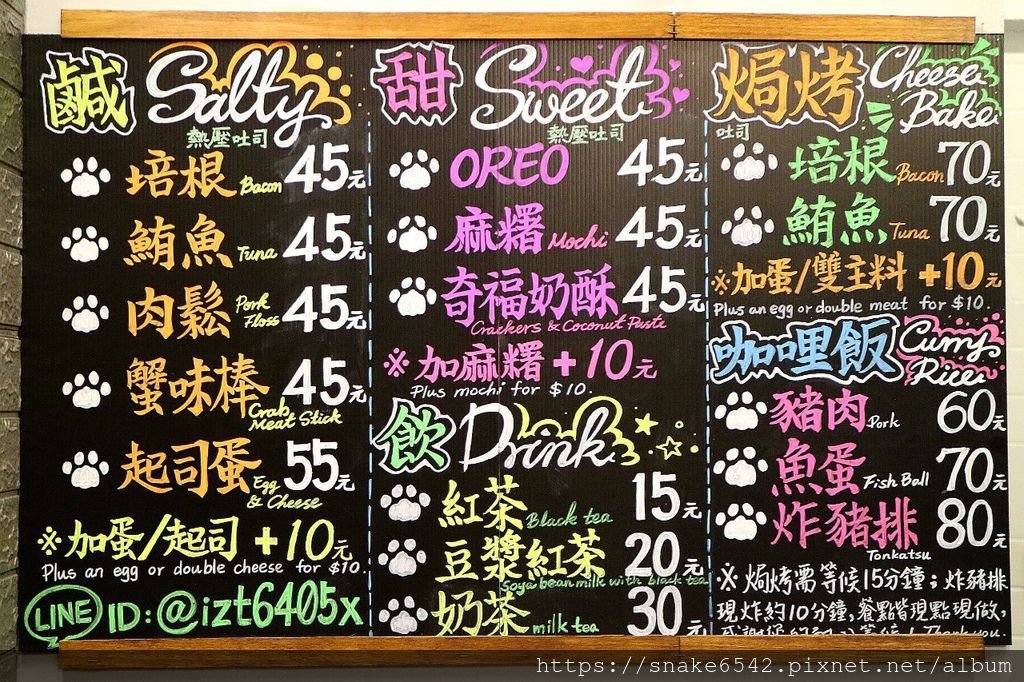 鹹 Salty
熱壓吐司
培根 Bacon 45元
鮪魚 Tuna 45元
肉鬆 Pork Floss 45元
蟹味棒 Crab Meat Stick 45元
起司蛋 Egg & Cheese 55元
※加蛋/起司 +10元
Plus an egg or double cheese for $10.
LINE ID:@izt6405x
甜 Sweet
熱壓吐司
OREO 45元
麻糬 Mochi 45元
奇福奶酥 45元
Crackers & Coconut Paste
※加麻糬+10元
Plus mochi for $10.
飲 Drink
紅茶 Black tea 15元
豆漿紅茶 20元
Soya bean milk with black tea
奶茶 milk tea 30元
焗烤 Cheese Bake
吐司
培根 Bacon 70元
鮪魚 Tuna 70元
※加蛋/雙主料 +10元
Plus an egg or double meat for $10.
咖哩飯 Curry Rice
豬肉 Pork 60元
魚蛋 Fish Ball 70元
炸豬排 80元
Tonkatsu
※焗烤需等候15分鐘;炸豬排
現炸約10分鐘,餐點皆現點現做,
感謝您的耐心等候! Thank you.
https://snake6542.pixnet.net/album